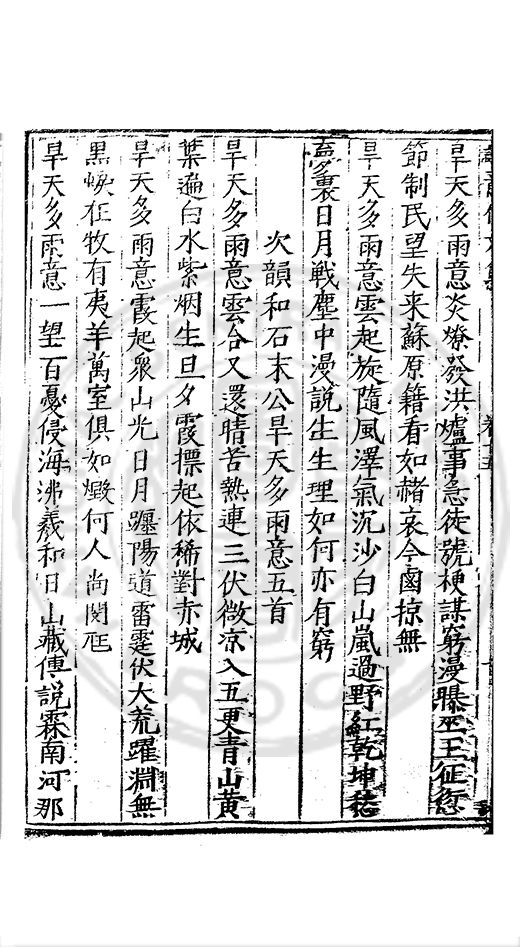 旱天多雨意炎燎發洪爐事急徒號梗謀窮漫曝巫王征愆
節制民望失来蘇原籍看如赭哀今鹵掠無
旱天多雨意雲起旋隨風澤氣沉沙白山嵐過野紅乾坤愁
裏日月戦塵中漫說生生理如何亦有窮
次韻和石末公旱天多雨意五首
旱天多雨意雲合又還晴苦熱連三伏微凉入五更青山黄
葉遍白水紫烟生旦夕霞摽起依稀對赤城
旱天多雨意霞起衆山光日月躔陽道雷霆伏大荒躍淵無
黒蜧在牧有夷羊萬室俱如燬何人尚閔尪
旱天多雨意一望百憂侵海沸羲和日山藏傳說霖南河那